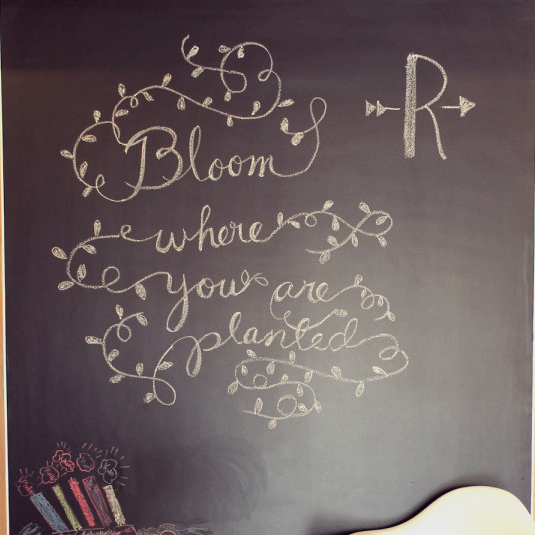 R
Bloom
where
you are
planted